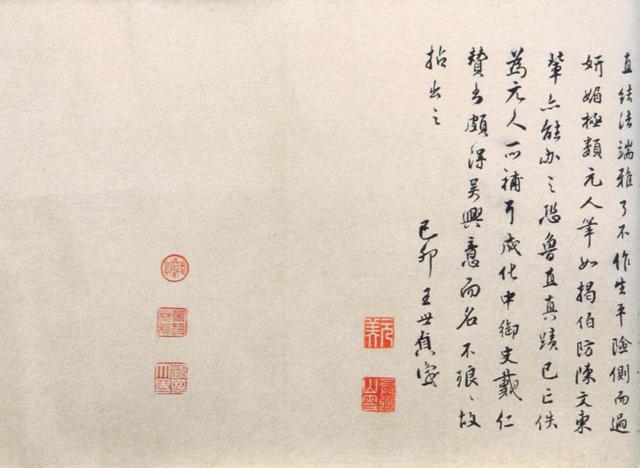 直結法端雅了不作生平險側而過
妍媚極類元人筆如揭伯防陳文東
輩亦能办之恐魯直真蹟已亡佚
為元人所補耳成化中御史戴仁
贊書頗得吳興意而名不琅〻故
拈出之
己卯王世貞
元美